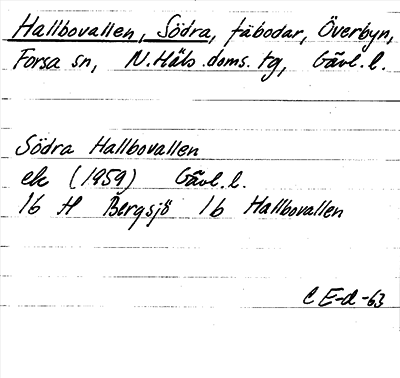 Hallbovallen, Södra, fäbodar, Överbyn,
Forsa sn, N.Häls.doms.tg, Gävl.l.
Södra Hallbovallen
ek (1959) Gävl.l.
16 H Bergsjö 16 Hallbovallen
C E-d -63